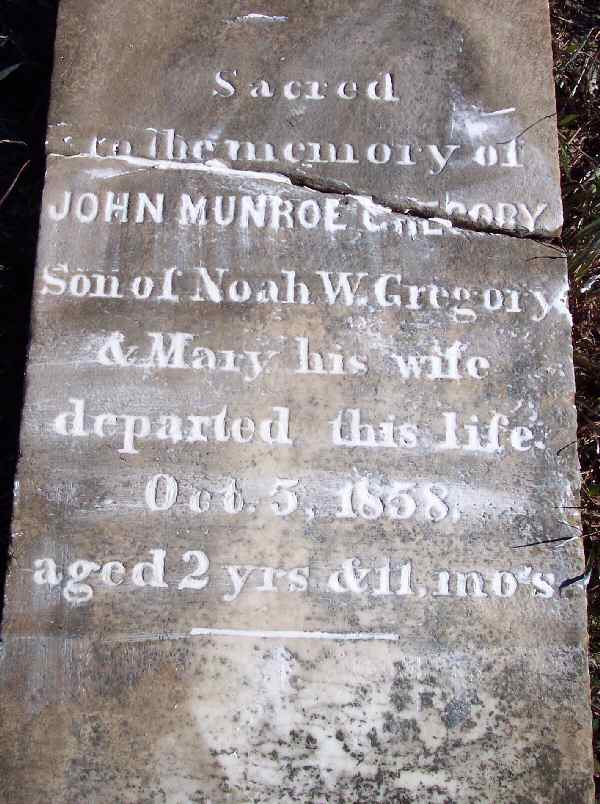 Sacred
to the memory of
JOHN MUNROE GREGORY
Son of Noah W. Gregory
& Mary his wife
departed this life.
Oct. 5, 1858.
aged 2 yrs & 11, mo's